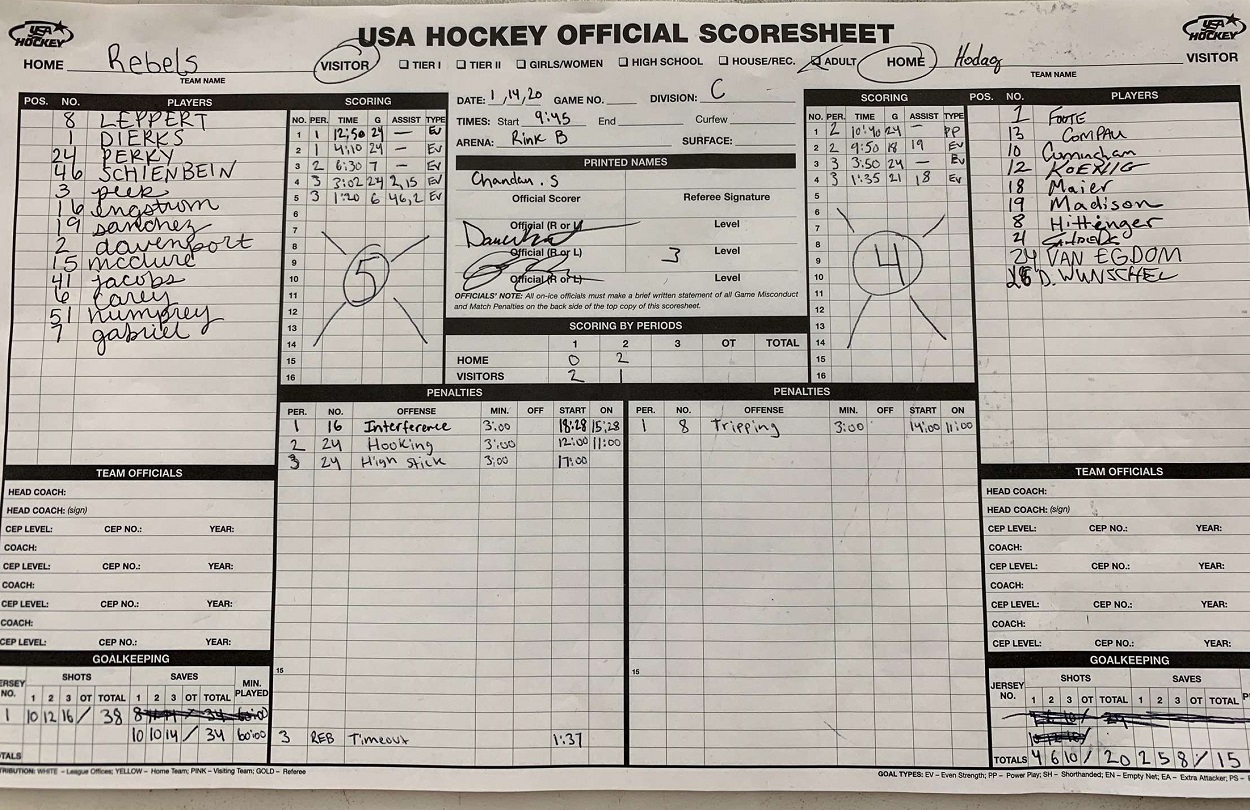 USA HOCKEY
USA HOCKEY OFFICIAL SCORESHEET
USA HOCKEY
HOME Rebels VISITOR TIER I TIER II GIRLS/WOMEN HIGH SCHOOL HOUSE/REC. ADULT HOME Hodag VISITOR
TEAM NAME TEAM NAME
POS. NO. PLAYERS
8 LEPPERT
1 DIERKS
24 PERKY
46 SCHIENBEIN
3 peek
16 engstrom
19 sanchez
2 davenport
15 mcclure
41 jacobs
6 carey
51 humprey
7 gabriel
SCORING
NO. PER. TIME G ASSIST TYPE
1 1 12:50 24 — EV
2 1 4:10 24 — EV
3 2 6:30 7 — EV
4 3 3:02 24 2,15 EV
5 3 1:20 6 46,2 EV
6
7
8
9
10
11
12
13
14
15
16
5
DATE: 1,14,20 GAME NO. DIVISION: C
TIMES: Start 9:45 End Curfew
ARENA: Rink B SURFACE:
PRINTED NAMES
Chandan. S
Official Scorer Referee Signature
Official (R or L) Level
Official (R or L) 3 Level
Official (R or L) Level
OFFICIALS' NOTE: All on-ice officials must make a brief written statement of all Game Misconduct
and Match Penalties on the back side of the top copy of this scoresheet.
SCORING BY PERIODS
1 2 3 OT TOTAL
HOME 0 2
VISITORS 2 1
SCORING
NO. PER. TIME G ASSIST TYPE
1 2 10:40 24 — PP
2 2 9:50 18 19 EV
3 3 3:50 24 — EV
4 3 1:35 21 18 EV
5
6
7
8
9
10
11
12
13
14
15
16
4
POS. NO. PLAYERS
1 FOOTE
13 COMPAU
10 Cunningham
12 KOENIG
18 Maier
19 Madison
8 Hittenger
21
24 VAN EGDOM
D. WUNSCHEL
PENALTIES
PER. NO. OFFENSE MIN. OFF START ON
1 16 Interference 3:00 18:28 15:28
2 24 Hooking 3:00 12:00 11:00
3 24 High stick 3:00 17:00
15
3 REB Timeout 1:37
PENALTIES
PER. NO. OFFENSE MIN. OFF START ON
1 8 Tripping 3:00 14:00 11:00
15
TEAM OFFICIALS
HEAD COACH:
HEAD COACH: (sign)
CEP LEVEL: CEP NO.: YEAR:
COACH:
CEP LEVEL: CEP NO.: YEAR:
COACH:
CEP LEVEL: CEP NO.: YEAR:
COACH:
CEP LEVEL: CEP NO.: YEAR:
GOALKEEPING
ERSEY NO. SHOTS SAVES MIN. PLAYED
1 2 3 OT TOTAL 1 2 3 OT TOTAL
1 10 12 16 / 38 8
10 10 14 / 34 60:00
TALS
TEAM OFFICIALS
HEAD COACH:
HEAD COACH: (sign)
CEP LEVEL: CEP NO.: YEAR:
COACH:
CEP LEVEL: CEP NO.: YEAR:
COACH:
CEP LEVEL: CEP NO.: YEAR:
COACH:
CEP LEVEL: CEP NO.: YEAR:
GOALKEEPING
JERSEY NO. SHOTS SAVES
1 2 3 OT TOTAL 1 2 3 OT TOTAL
TOTALS 4 6 10 / 20 2 5 8 / 15
TRIBUTION: WHITE – League Offices; YELLOW – Home Team; PINK – Visiting Team; GOLD – Referee
GOAL TYPES: EV – Even Strength; PP – Power Play; SH – Shorthanded; EN – Empty Net; EA – Extra Attacker; PS –